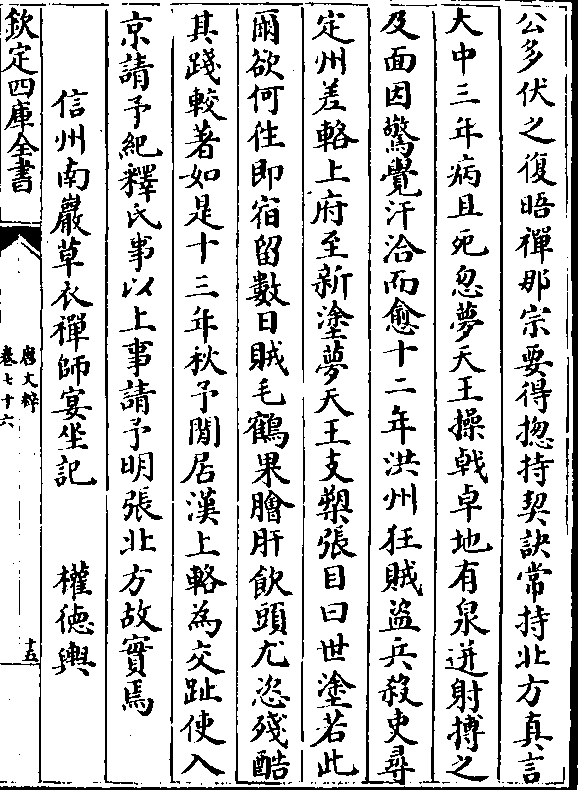 公多伏之復晤禪那宗要得揔持契訣常持北方真言
大中三年病且死忽夢天王操戟卓地有泉迸射搏之
及面因驚覺汗洽而愈十二年洪州狂賊盜兵殺吏尋
定州差輅上府至新塗夢天王支槊張目曰世塗若此
爾欲何徃即宿留數日賊毛鶴果膾肝飲頭尤恣殘酷
其踐較著如是十三年秋予閒居漢上輅為交趾使入
京請予紀釋氏事以上事請予明張北方故實焉
信州南巖草衣禪師宴坐記　權德輿
欽定四庫全書
唐文粹
卷七十六
十五